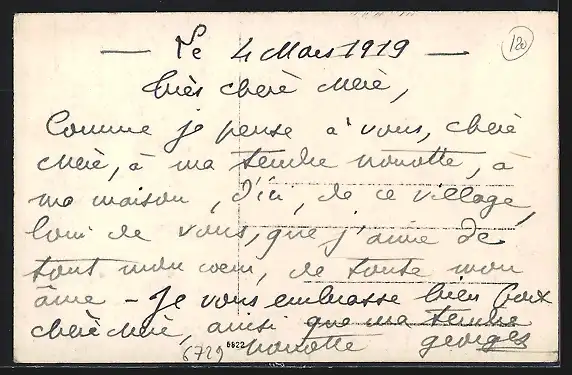 — Le 4 Mars 1919 — 120
très chère Mère,
Comme je pense à vous, chère
Mère, à ma tendre nonotte, à
ma maison, d'ici, de ce village,
loin de vous, que j'aime de
tout mon coeur, de toute mon
âme - Je vous embrasse bien fort
chère Mère, ainsi que ma tendre
6729 6922 nonotte georges